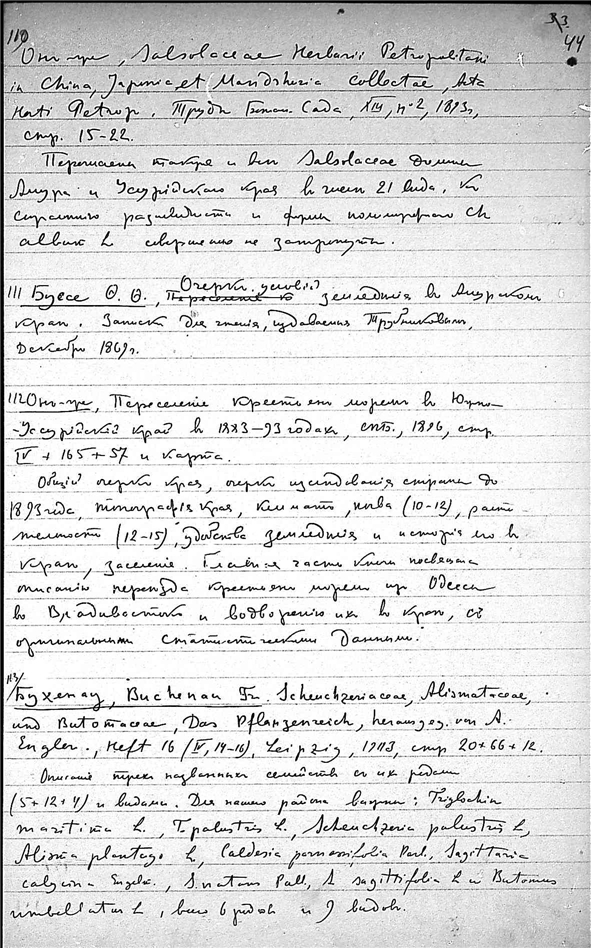 33
110 44
Онъ-же, Salsolaceae Herbarii Petropolitani
in China, Japonia et Mandshuria collectae, Acta
Horti Petrop. Труды Ботан. Сада, XIII, №2, 1893г.,
стр. 15-22.
Перечислены также и все Salsolaceae долины
Амура и Уссурійскаго края въ числе 21 вида. Къ
сожалению разновидности и формы полиморфнаго Ch.
album L. совершенно не затронуты.
111 Буссе Ѳ. Ѳ., Очерки условій земледелія въ Амурскомъ
крае. Записки для чтенія, издаваемыя Трубниковымъ,
Декабрь 1869г.
112 Онъ-же, Переселеніе крестьянъ моремъ въ Южно-
Уссурійскій край въ 1883-93 годахъ, СПб., 1896, стр.
IV + 165 + 57 и карта.
Общій очеркъ края, очеркъ изследованія страны до
1893 года, топографія края, климатъ, почва (10-12), расти-
тельность (12-15), удобства земледелія и исторія его въ
крае, заселеніе. Главная часть книги посвящена
описанію переезда крестьянъ моремъ изъ Одессы
во Владивостокъ и водворенію ихъ въ крае, съ
оригинальными статистическими данными.
113 Бухенау, Buchenau Fr. Scheuchzeriaceae, Alismataceae,
und Butomaceae, Das Pflanzenreich, herausgeg. von A.
Engler., Heft 16 (IV, 14-16), Leipzig, 1903, стр 20+66+12.
Описаніе трехъ названныхъ семействъ съ ихъ родами
(5+12+4) и видами. Для нашего района важны: Triglochin
maritima L., T. palustris L., Scheuchzeria palustris L.,
Alisma plantago L., Caldesia parnassifolia Parl., Sagittaria
calycina Engelm., S. natans Pall., S. sagittifolia L. и Butomus
umbellatus L., всего 6 родовъ и 9 видовъ.